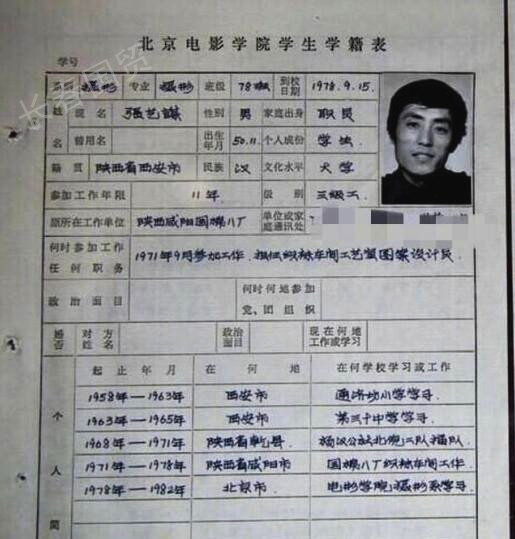 北京电影学院学生学籍表
学号
系别 摄影 专业 摄影 班级 78班 到校日期 1978.9.15.
姓名 现名 张艺谋 性别 男 家庭出身 职员
曾用名 出生年月 50.11. 个人成份 学生
籍贯 陕西省西安市 民族 汉 文化水平 大学
参加工作年限 11年 级别 三级工
原所在工作单位 陕西咸阳国棉八厂 单位或家庭通讯处
何时参加工作任何职务 1971年9月参加工作. 担任织袜车间工艺室图案设计员.
政治面目 何时何地参加党、团组织
婚否 对方姓名 政治面目 现在何地工作或学习
起止年月 在何地 在何学校学习或工作
1958年—1963年 西安市 通济坊小学学习
1963年—1965年 西安市 第三十中学学习
1968年—1971年 陕西省乾县 杨汉公社北倪二队插队
1971年—1978年 陕西省咸阳市 国棉八厂织袜车间工作
1978年—1982年 北京市 电影学院摄影系学习
个人简